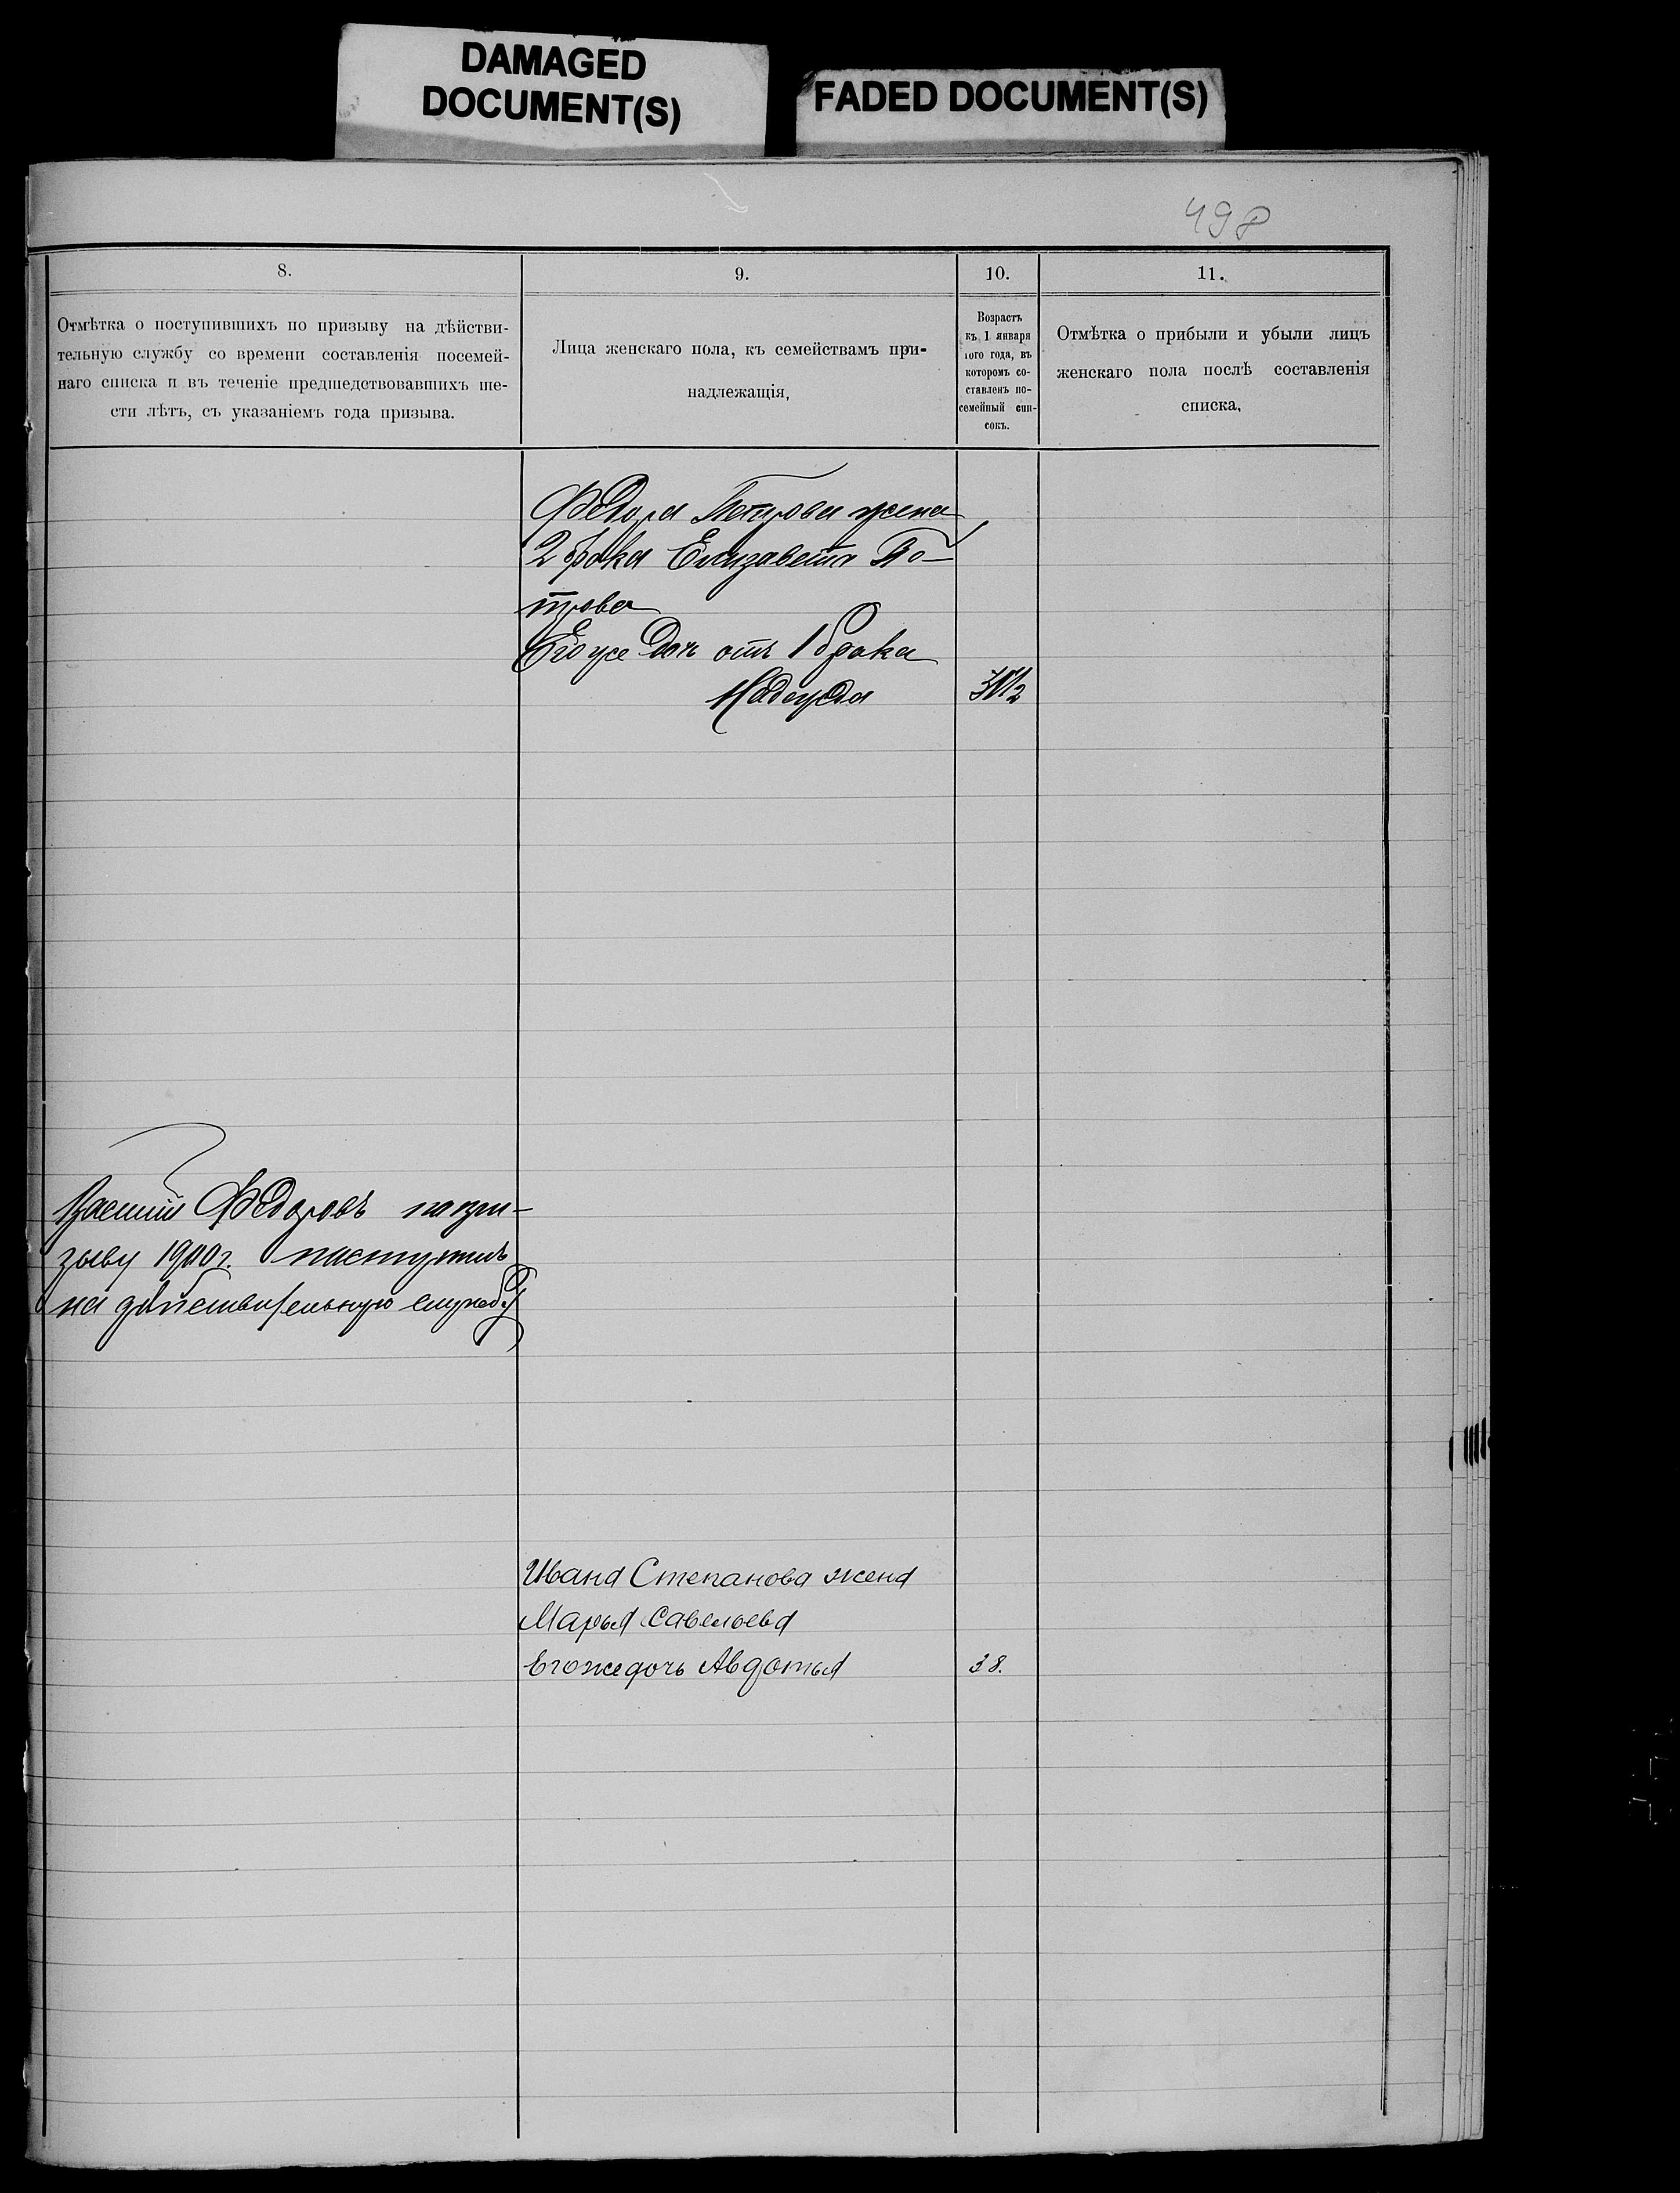 DAMAGED
DOCUMENT(S)
FADED DOCUMENT(S)
498
8.
9.
10.
11.
Отмѣтка о поступившихъ по призыву на дѣйстви-
тельную службу со времени составленія посемей-
наго списка и въ теченіе предшедствовавшихъ ше-
сти лѣтъ, съ указаніемъ года призыва.
Лица женскаго пола, къ семействамъ при-
надлежащія,
Возрастъ
къ 1 января
того года, въ
которомъ со-
ставленъ по-
семейный спи-
сокъ.
Отмѣтка о прибыли и убыли лицъ
женскаго пола послѣ составленія
списка.
Федора Петрова жена
2 брака Елизавета
трова
Его же доч отъ 1 брака
Надежда
Василій Федоровъ по при-
зыву 1900 г. поступилъ
на дѣйствительную службу
Ивана Степанова жена
Марья Савельева
Егоже дочь Авдотья
38.